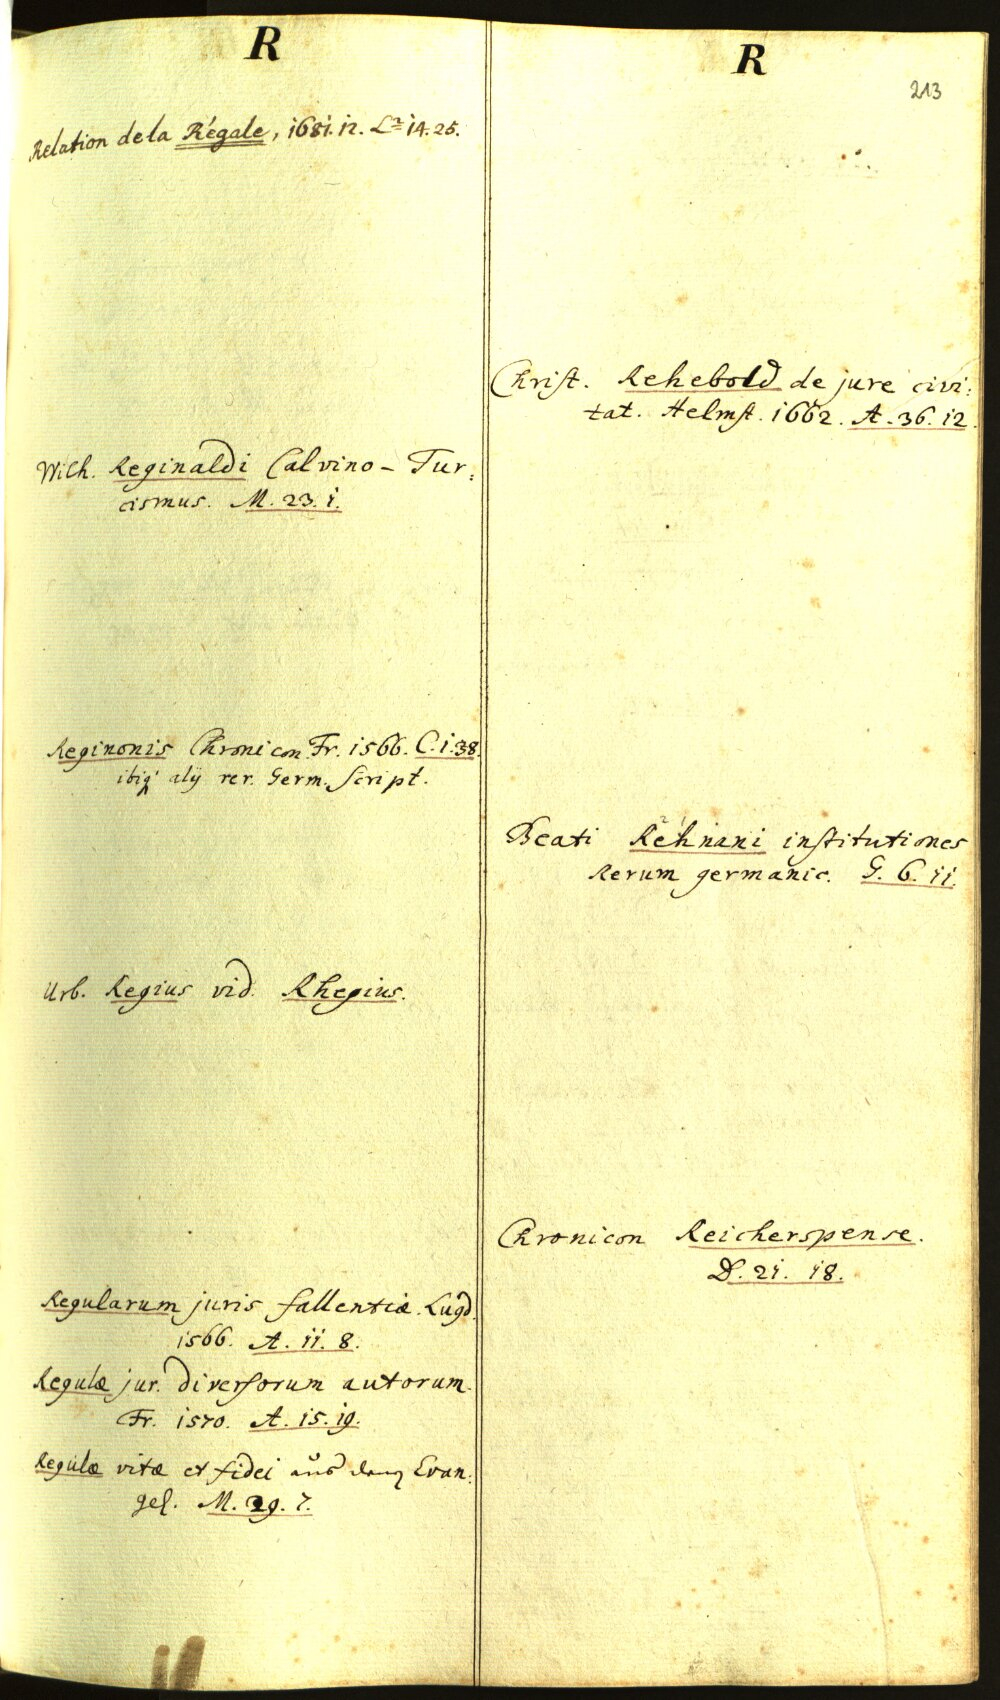 R
Relation de la Régale, 1681. 12. La 14. 25.
Wilh. Reginaldi Calvino-Tur:
cismus. M. 23. i.
Reginonis Chronicon Fr. 1566. C. i. 38.
ibiq' alÿ rer. Germ. Script.
Urb. Regius vid. Rhegius.
Regularum juris fallentiæ. Lugd.
1566. A. ii. 8.
Regulæ jur. diversorum autorum.
Fr. 1570. A. 15. 19.
Regulæ vitæ et fidei auß dem Evan:
gel. M. 29. 7.
R
213
Christ. Rehebold de jure civi:
tat. Helmst. 1662. A. 36. 12.
Beati Rehnani institutiones
Rerum germanic. G. 6. ii.
Chronicon Reicherspense.
D. 21. 18.